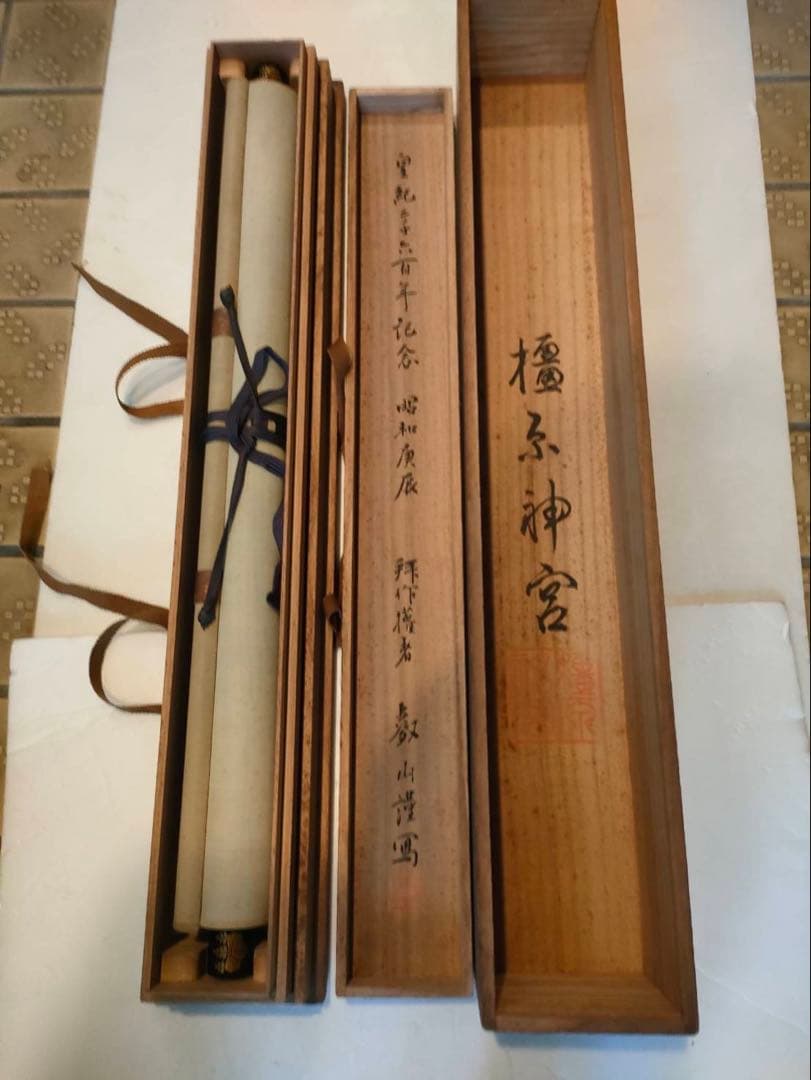 橿原神宮
皇紀二千六百年記念 昭和庚辰 拜作權者 叡山謹寫